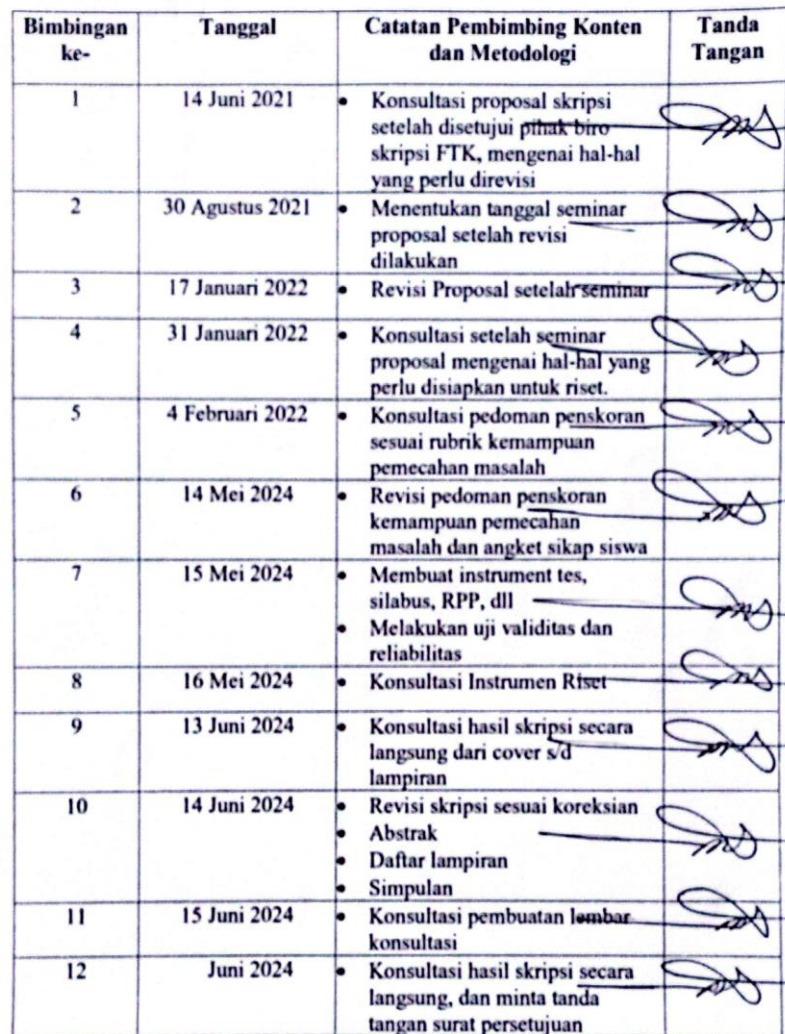 Bimbingan ke- Tanggal Catatan Pembimbing Konten dan Metodologi Tanda Tangan
1 14 Juni 2021 • Konsultasi proposal skripsi
setelah disetujui pihak biro
skripsi FTK, mengenai hal-hal
yang perlu direvisi
2 30 Agustus 2021 • Menentukan tanggal seminar
proposal setelah revisi
dilakukan
3 17 Januari 2022 • Revisi Proposal setelah seminar
4 31 Januari 2022 • Konsultasi setelah seminar
proposal mengenai hal-hal yang
perlu disiapkan untuk riset.
5 4 Februari 2022 • Konsultasi pedoman penskoran
sesuai rubrik kemampuan
pemecahan masalah
6 14 Mei 2024 • Revisi pedoman penskoran
kemampuan pemecahan
masalah dan angket sikap siswa
7 15 Mei 2024 • Membuat instrument tes,
silabus, RPP, dll
• Melakukan uji validitas dan
reliabilitas
8 16 Mei 2024 • Konsultasi Instrumen Riset
9 13 Juni 2024 • Konsultasi hasil skripsi secara
langsung dari cover s/d
lampiran
10 14 Juni 2024 • Revisi skripsi sesuai koreksian
• Abstrak
• Daftar lampiran
• Simpulan
11 15 Juni 2024 • Konsultasi pembuatan lembar
konsultasi
12 Juni 2024 • Konsultasi hasil skripsi secara
langsung, dan minta tanda
tangan surat persetujuan